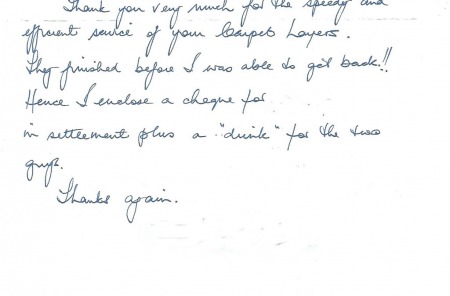 Thank you very much for the speedy and
efficient service of your Carpet Layers.
They finished before I was able to get back!!
Hence I enclose a cheque for
in settlement plus a "drink" for the two
guys.
Thanks again.